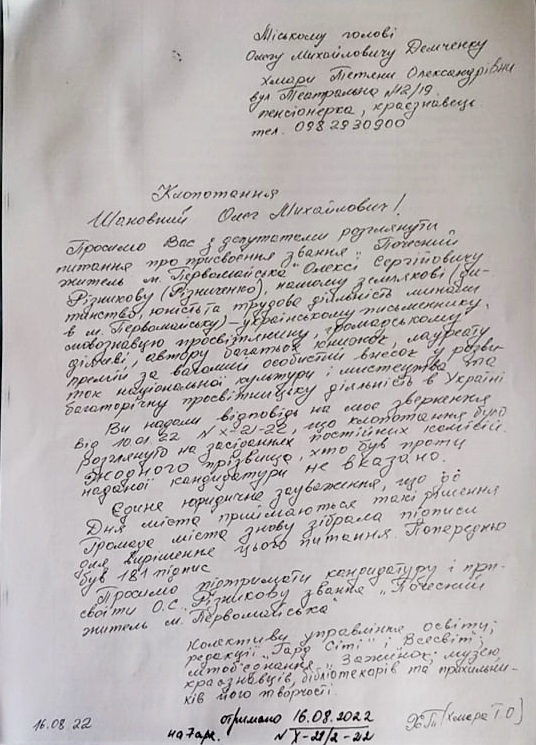 Міському голові
Олегу Михайловичу Демченку
Хмари Тетяни Олександрівни
вул. Театральна №12/19
пенсіонерка, краєзнавець
тел. 0982930900
Клопотання
Шановний Олег Михайлович!
Просимо Вас з депутатами розглянути
питання про присвоєння звання „Почесний
житель м. Первомайська" Олексі Сергійовичу
Різникову (Різниченко), нашому землякові (ди-
тинство, юність та трудова діяльність минали
в м. Первомайську) – українському письменнику,
мовознавцю просвітянину, громадському
діячеві, автору багатьох книжок, лауреату
премій за вагомий особистий внесок у розви-
ток національної культури і мистецтва та
багаторічну просвітницьку діяльність в Україні
Ви надали відповідь на моє звернення
від 10.01.22 № Х-21-22, що клопотання було
розглянуто на засіданнях постійних комісій.
Жодного прізвища, хто був проти
наданої кандидатури не вказано.
Єдине юридичне зауваження, що до
Дня міста приймаються такі рішення
Громада міста знову зібрала підписи
для вирішення цього питання. Попередньо
був 181 підпис
Просимо підтримати кандидатуру і при-
своїти О.С. Різникову звання „Почесний
житель м. Первомайська"
Колективу управління освіти;
редакції „Гард Сіті" і Всесвіт;
літоб'єднання „Зажинок", музею,
краєзнавців, бібліотекарів та прихильни-
ків його творчості.
16.08.22
отримано 16.08.2022
на 7 арк.
№ Х-28/2-22
(Хмара Т.О)